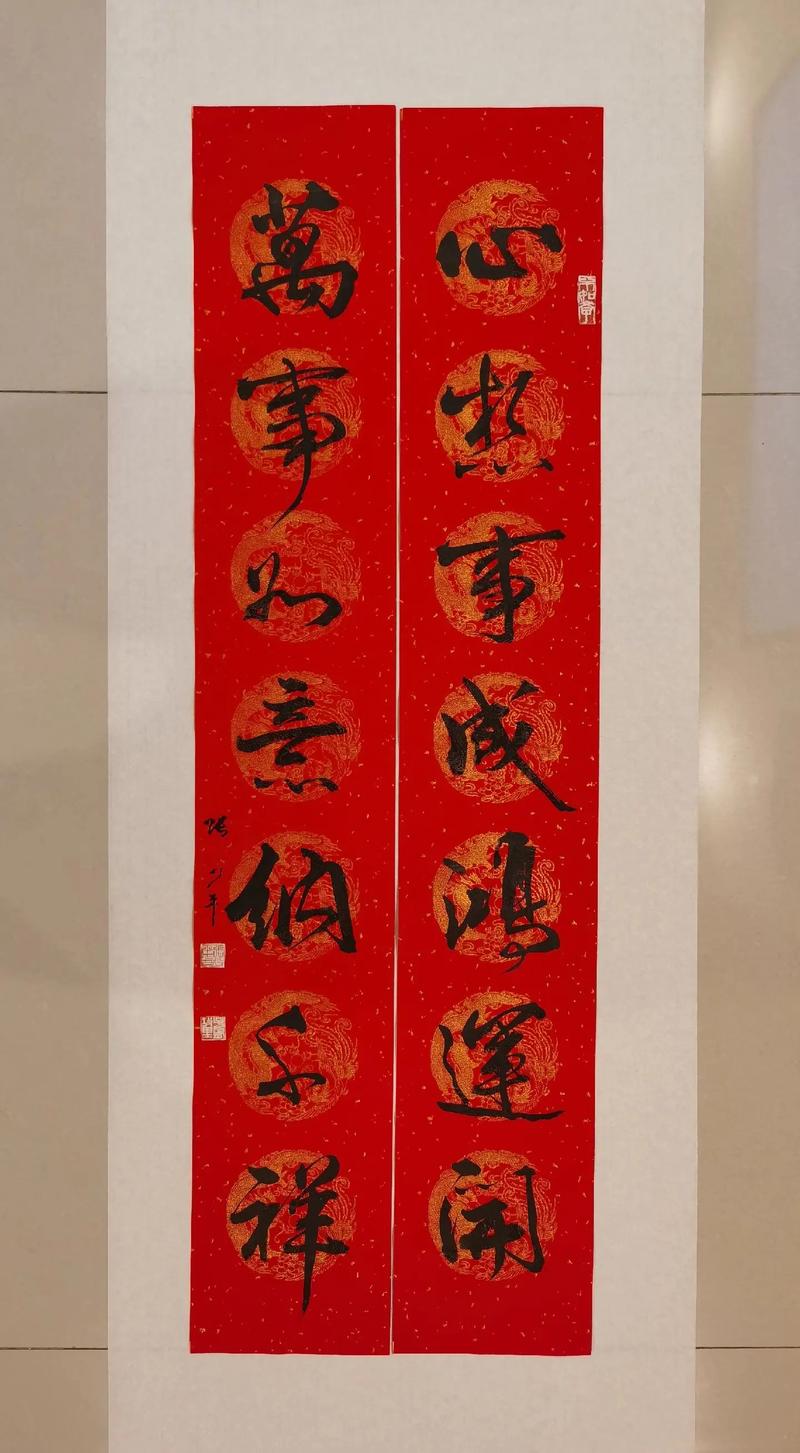 心想事成鴻運開
萬事如意納千祥